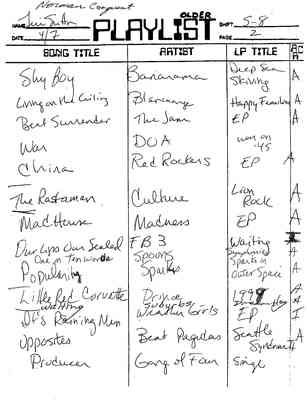 Norman Conquest
NAME Jim Sutton SHIFT 5-8
OLDER
PLAYLIST
DATE 4/7 PAGE 2
SONG TITLE ARTIST LP TITLE
Shy Boy Bananarama Deep Sea Skiving
Living on the Ceiling Blancmange Happy Families A
Beat Surrender The Jam EP A
War DOA war on 45
China Red Rockers EP A
The Rastaman Culture Lion Rock A
Mad House Madness EP A
Our Lips Our Sealed FB3 Waiting
One in Ten Words Spoons A
Popularity Sparks Sparks in Outer Space A
Little Red Corvette Prince 1999 A
It's Raining Men Weather Girls EP I
Opposites Beat Pagodas Seattle Syndrome II A
Producer Gang of Four Single